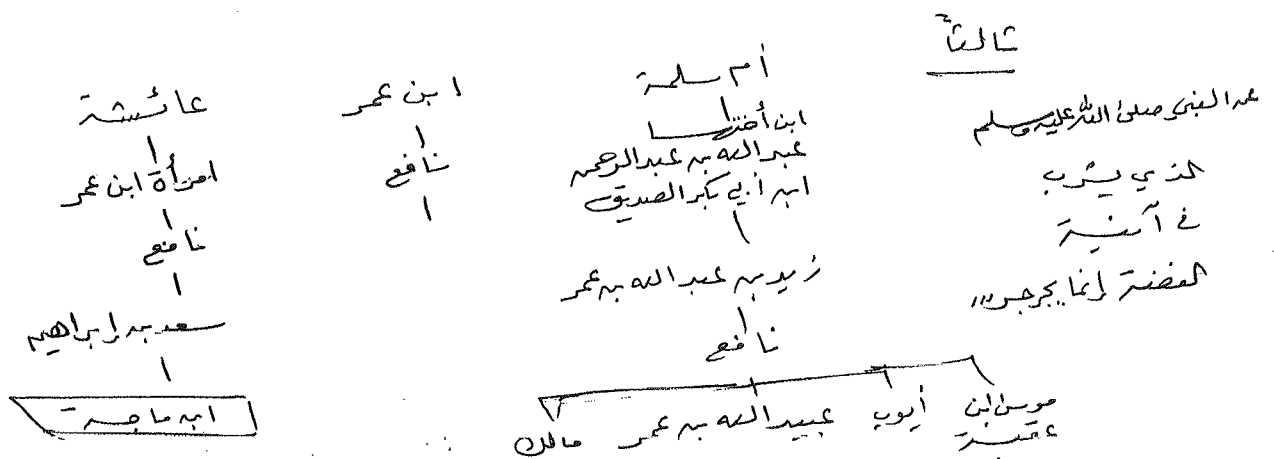 ثالثاً
عن النبي صلى الله عليه وسلم
الذي يشرب
في آنية
الفضة إنما يجرجر،،،
أم سلمة
ابن أختها
عبد الله بن عبد الرحمن
ابن أبي بكر الصديق
زيد بن عبد الله بن عمر
نافع
موسى ابن عقبة أيوب عبيد الله بن عمر مالك
ابن عمر
نافع
عائشة
امرأة ابن عمر
نافع
سعد بن إبراهيم
ابن ماجة